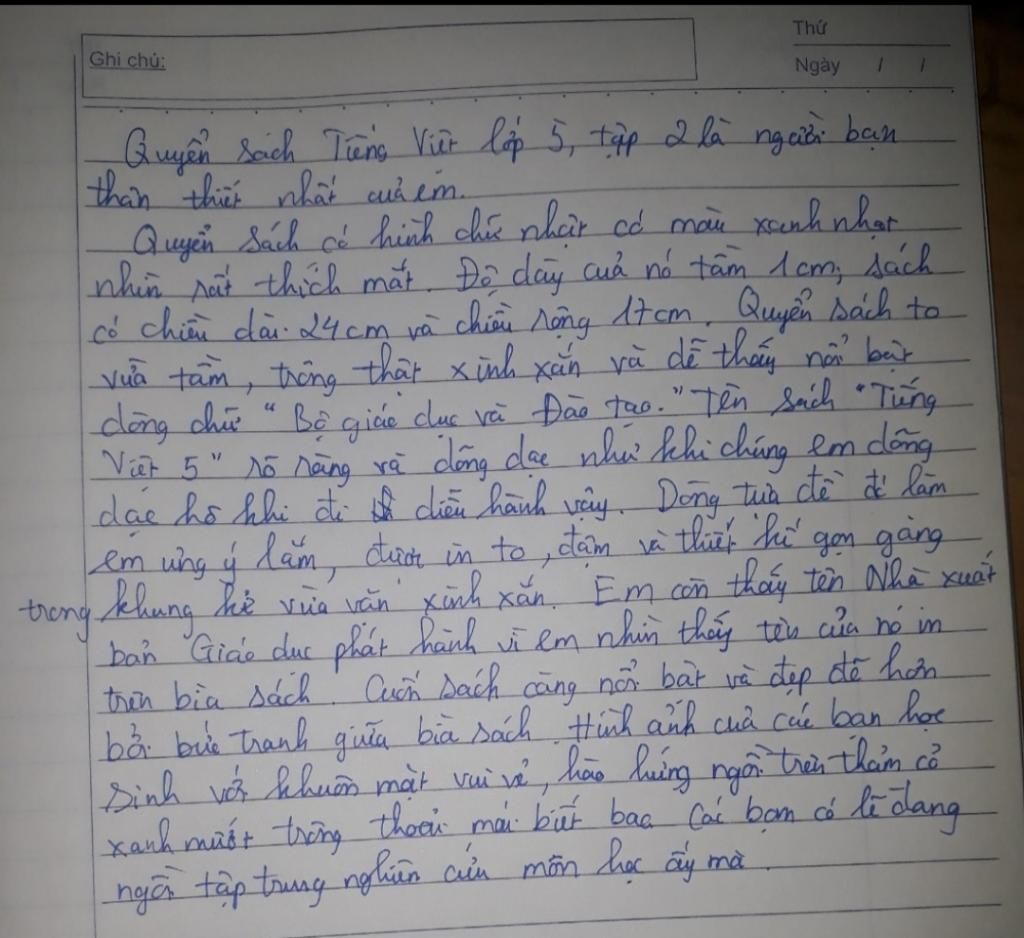 Ghi chú:
Thứ
Ngày / /
Quyển sách Tiếng Việt lớp 5, tập 2 là người bạn
thân thiết nhất của em.
Quyển sách có hình chữ nhật có màu xanh nhạt
nhìn rất thích mắt. Độ dày của nó tầm 1cm, sách
có chiều dài 24cm và chiều rộng 17cm. Quyển sách to
vừa tầm, trông thật xinh xắn và dễ thấy nổi bật
dòng chữ "Bộ giáo dục và Đào tạo." Tên sách "Tiếng
Việt 5" rõ ràng và dõng dạc như khi chúng em dõng
dạc hô khi đi diễu hành vậy. Dòng tựa đề đó làm
em ưng ý lắm, được in to, đậm và thiết kế gọn gàng
trong khung kẻ vừa vặn xinh xắn. Em còn thấy tên Nhà xuất
bản Giáo dục phát hành vì em nhìn thấy tên của nó in
trên bìa sách. Cuốn sách càng nổi bật và đẹp đẽ hơn
bởi bức tranh giữa bìa sách. Hình ảnh của các bạn học
sinh với khuôn mặt vui vẻ, hào hứng ngồi trên thảm cỏ
xanh mướt trông thoải mái biết bao. Các bạn có lẽ đang
ngồi tập trung nghiên cứu môn học ấy mà.